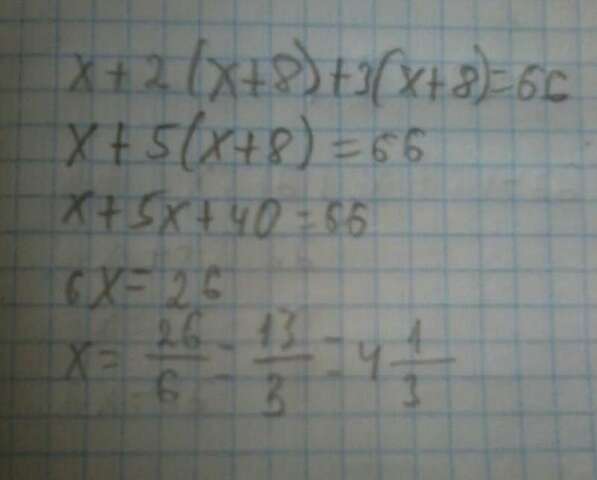 x+2(x+8)+3(x+8)=66
x+5(x+8)=66
x+5x+40=66
6x=26
x=26/6=13/3=4 1/3